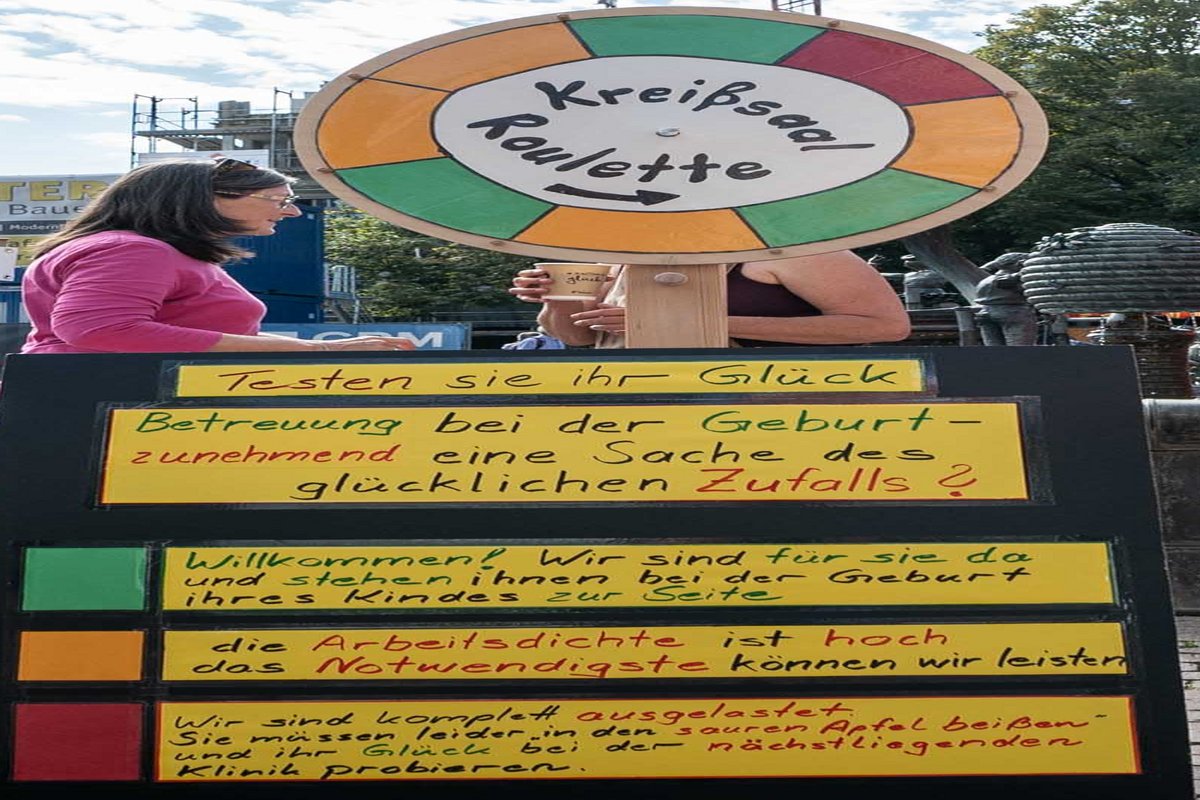 Kreißsaal
Roulette
TER
Baue
Modern
glück
GRM
Testen sie ihr Glück
Betreuung bei der Geburt-
zunehmend eine Sache des
glücklichen Zufalls?
Willkommen! Wir sind für sie da
und stehen ihnen bei der Geburt
ihres Kindes zur Seite
die Arbeitsdichte ist hoch
das Notwendigste können wir leisten
Wir sind komplett ausgelastet.
Sie müssen leider "in den sauren Apfel beißen"
und ihr Glück bei der nächstliegenden
Klinik probieren.